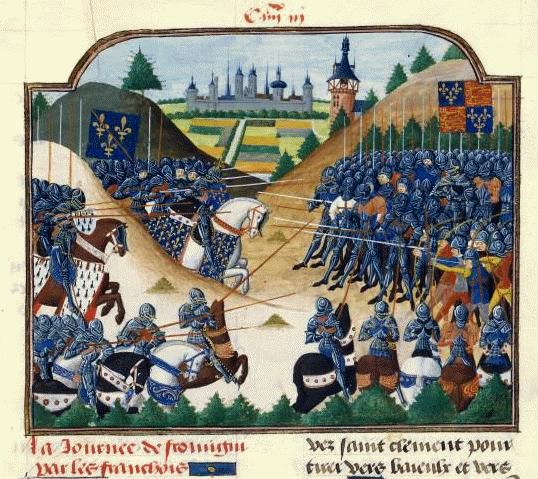 La Journee de fromigni
par les franchois
vez saint clement pour
tirer vers baieulx et vers